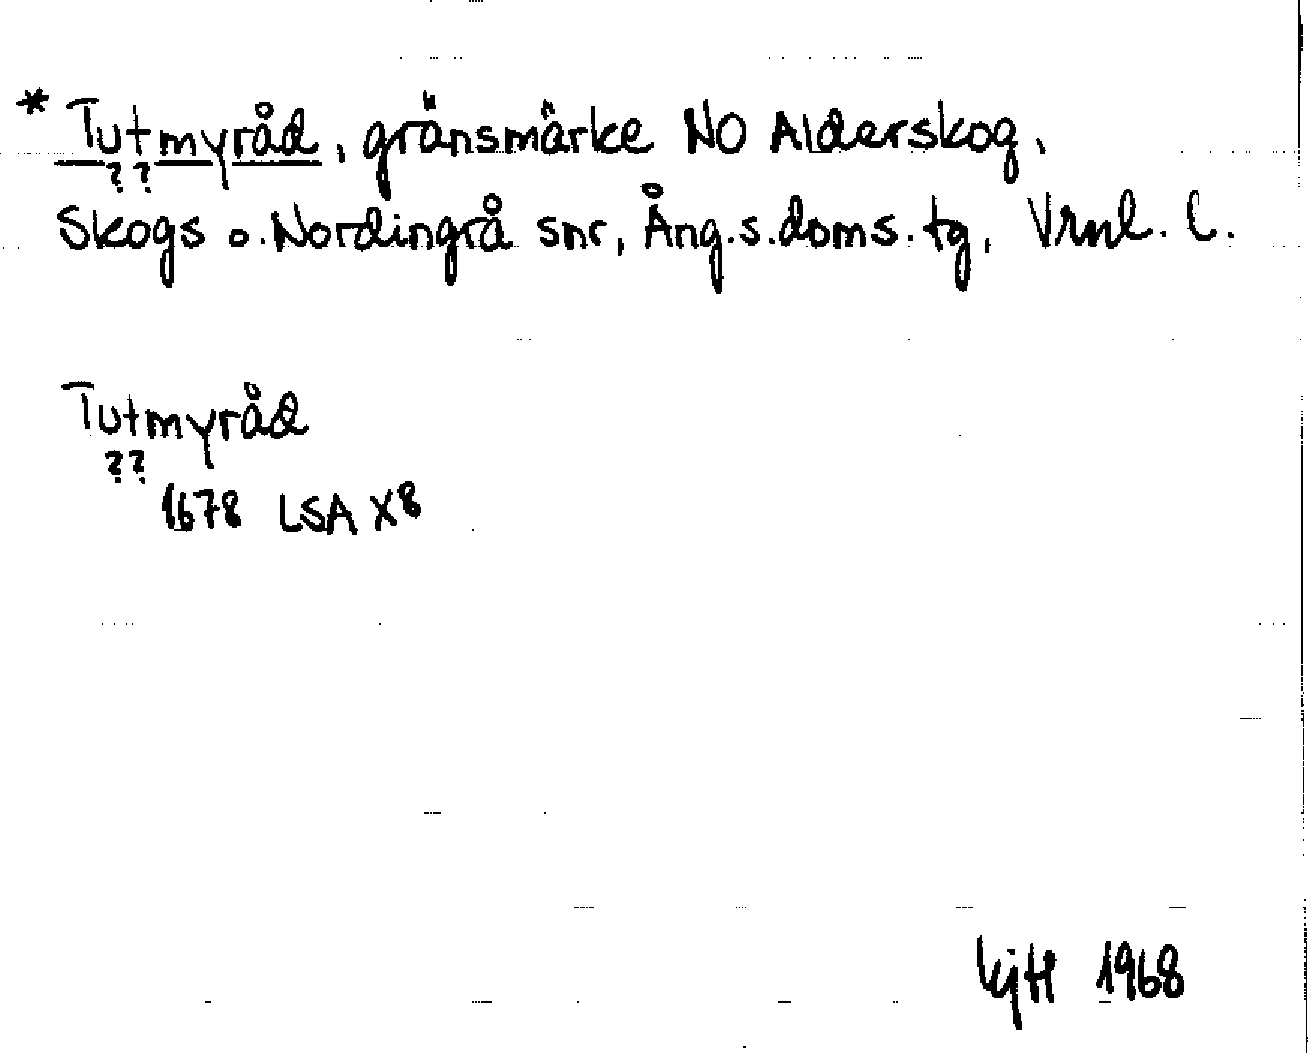 * Tutmyråd, gränsmärke NO Alderskog,
? ?
Skogs o. Nordingrå snr, Ång.s.doms.tg, Vrnl. l.
Tutmyråd
? ?
1678 LSA X8
1968